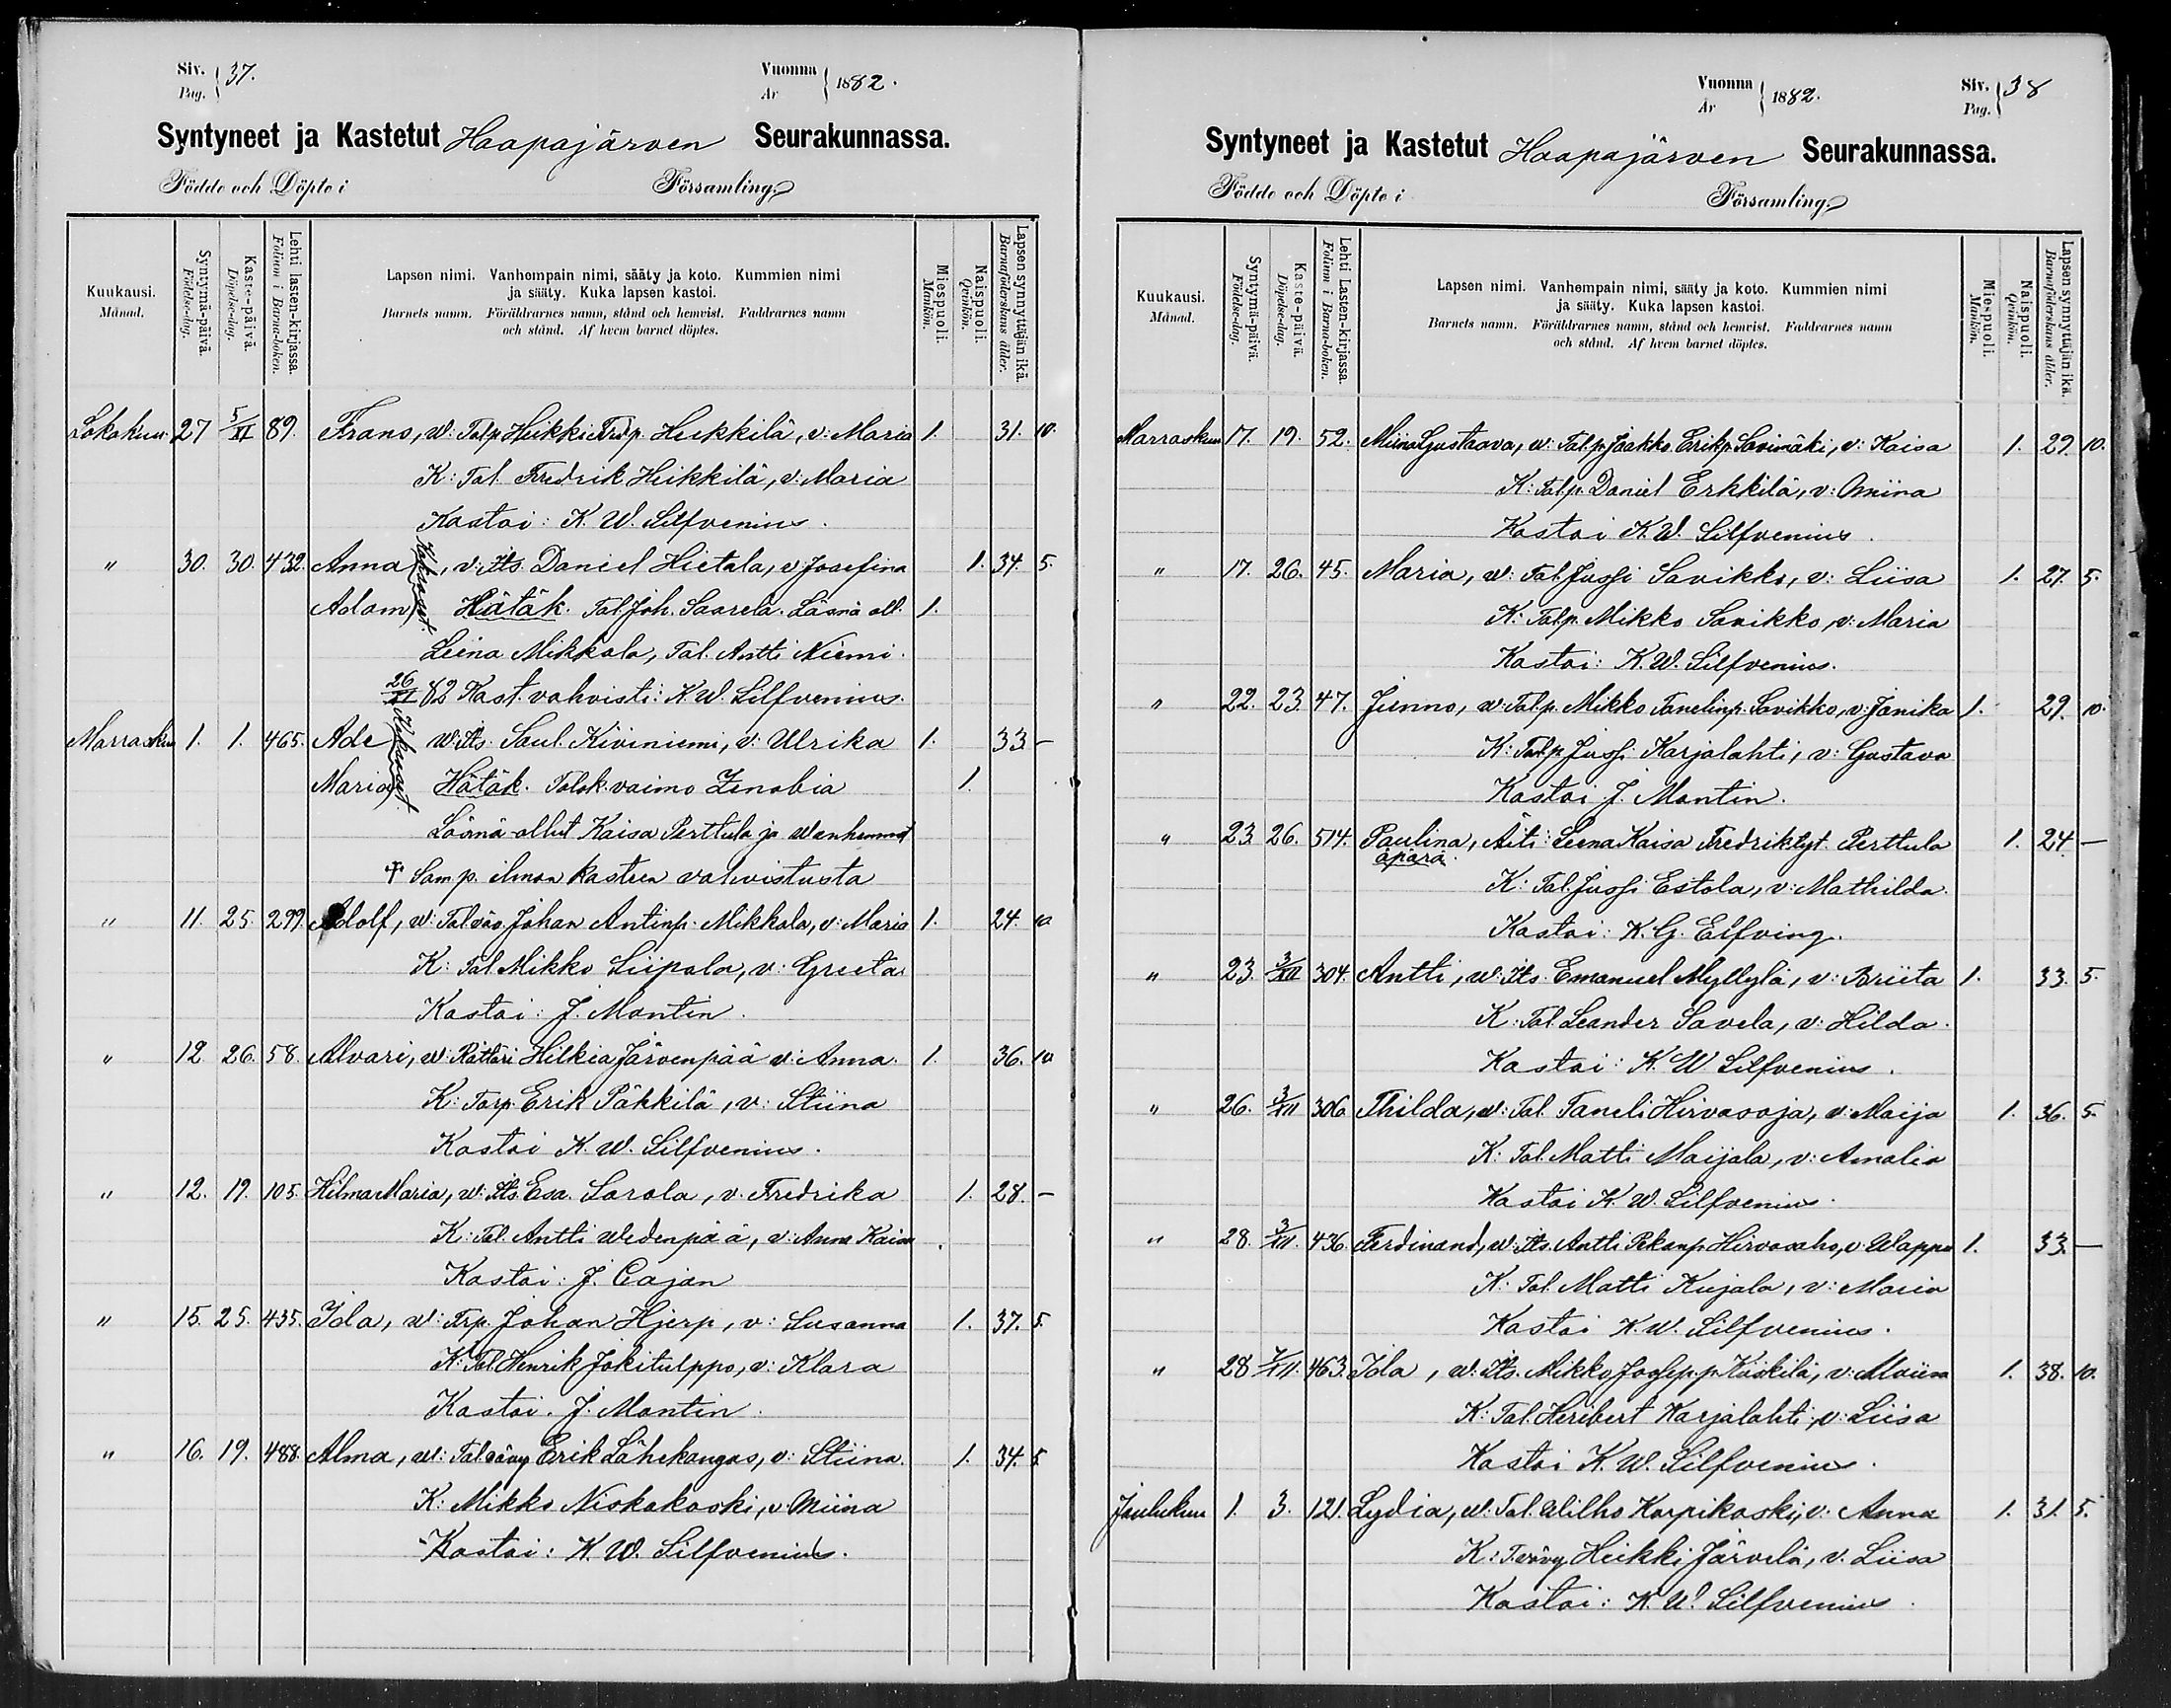 Siv. Pag. 37.
Vuonna År 1882.
Syntyneet ja Kastetut Haapajärven Seurakunnassa.
Födde och Döpte i Församling.
Kuukausi. Månad.
Syntymä-päivä. Födelse-dag.
Kaste-päivä. Döpelse-dag.
Lehti lasten-kirjassa. Folium i Barna-boken.
Lapsen nimi. Vanhempain nimi, sääty ja koto. Kummien nimi
ja sääty. Kuka lapsen kastoi.
Barnets namn. Föräldrarnes namn, stånd och hemvist. Faddrarnes namn
och stånd. Af hvem barnet döptes.
Miespuoli. Mankön.
Naispuoli. Qvinkön.
Lapsen synnyttäjän ikä. Barnaföderskans ålder.
Lokakuu 27 5/XI 89. Frans, w: Talp. Heikki Fredp. Heikkilä, v: Maria 1. 31. 10.
K: Tal. Fredrik Heikkilä, v: Maria
Kastoi: K. W. Silfvenius.
" 30. 30. 432. Anna Kaksoset, v: Its. Daniel Hietala, v: Josefina 1. 34. 5.
Adam Hätäk. Tal. Joh. Saarela. Läsnä oll. 1.
Leena Mikkola, Tal. Antti Niemi.
26/XI 82 Kast. vahvisti: K W. Silfvenius.
Marraskuu 1. 1. 465. Ade Kaksoset w: Its. Saul Kiviniemi, v: Ulrika 1. 33 –
Maria Hätäk. Talok. vaimo Zenobia 1.
Läsnä ollut Kaisa Perttula ja Wanhemmat
† Sam. p. ilman kasteen vahvistusta
" 11. 25. 299. Adolf, w: Talväv. Johan Antinp. Mikkola, v: Maria 1. 24. 10
K: Tal. Mikko Siipola, v: Greeta
Kastoi: J. Montin.
" 12 26. 58. Alvari, w: Räätäri Hilkia Järvenpää v: Anna. 1. 36. 10
K: Torp. Erik Päkkilä, v: Stiina
Kastoi K. W. Silfvenius.
" 12. 19. 105. Hilma Maria, w: Its. Esa Sarola, v. Fredrika 1. 28. –
K: Tal. Antti Wedenpää, v: Anna Kaisa
Kastoi: J. Cajan
" 15. 25. 435. Ida, w: Trp. Johan Hjerp, v: Susanna 1. 37. 5
K: Tal. Henrik Jokitulppo, v: Klara
Kastoi. J. Montin.
" 16. 19. 488. Alma, w: Talvävy Erik Lähekangas, v: Stiina. 1. 34. 5
K: Mikko Niskakoski, v: Miina
Kastoi: K. W. Silfvenius.
Vuonna År 1882.
Siv. Pag. 38
Syntyneet ja Kastetut Haapajärven Seurakunnassa.
Födde och Döpte i Församling.
Kuukausi. Månad.
Syntymä-päivä. Födelse-dag.
Kaste-päivä. Döpelse-dag.
Lehti Lasten-kirjassa. Folium i Barna-boken.
Lapsen nimi. Vanhempain nimi, sääty ja koto. Kummien nimi
ja sääty. Kuka lapsen kastoi.
Barnets namn. Föräldrarnes namn, stånd och hemvist. Faddrarnes namn
och stånd. Af hvem barnet döptes.
Miespuoli. Mankön.
Naispuoli. Qvinkön.
Lapsen synnyttäjän ikä. Barnaföderskans ålder.
Marraskuu 17. 19. 52. Miina Gustaava, w: Tal. p. Jaakko Erikp. Savimäki, v: Kaisa 1. 29. 10.
K: Talp. Daniel Erkkilä, v: Miina
Kastoi K. W. Silfvenius.
" 17. 26. 45. Maria, w: Tal. Jussi Savikko, v: Liisa 1. 27. 5.
K: Talp. Mikko Savikko, v: Maria
Kastoi: K. W. Silfvenius.
" 22. 23 47. Jienno, w: Talp. Mikko Tanelinp. Savikko, v: Janika 1. 29. 10.
K: Talp. Jussi Karjalahti, v: Gustava
Kastoi J. Montin.
" 23. 26. 514. Paulina, Äiti: Leena Kaisa Fredriktyt. Perttula 1. 24. –
äpärä.
K: Tal. Jussi Estola, v: Mathilda.
Kastoi: K. G. Elfving.
" 23. 3/XII 304. Antti, w: Its. Emanuel Myllylä, v: Briita 1. 33. 5.
K: Tal. Leander Savela, v: Hilda.
Kastoi: K. W Silfvenius.
" 26. 3/XII 306 Thilda, w: Tal. Taneli Hirvasoja, v: Maija 1. 36. 5.
K: Tal. Matti Maijala, v: Amalia
Kastoi K. W. Silfvenius.
" 28. 3/XII. 436. Ferdinand, w: Its. Antti Pekanp. Hirvasaho, v: Wappu 1. 33 –
K: Tal. Matti Kujala, v: Maria
Kastoi K. W. Silfvenius.
" 28 463. Ida, w: Its. Mikko Kiiskilä, v: Maria 1. 38. 10.
K: Tal. Heribert Karjalahti, v: Liisa
Kastoi K. W. Silfvenius.
Joulukuu 1. 3. 121. Lydia, w: Tal. Wilho Karpikoski, v: Anna 1. 31. 5.
K: Heikki Järvelä, v. Liisa
Kastoi: K. W. Silfvenius.